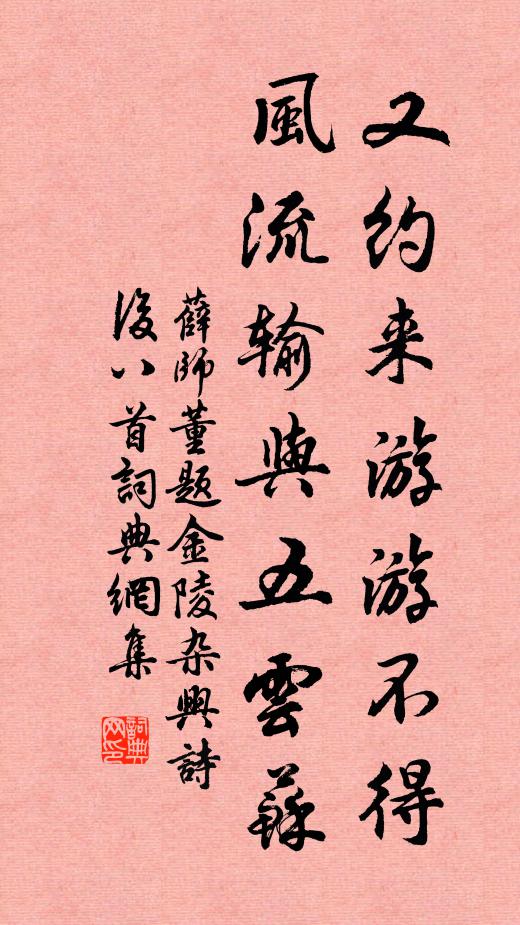 又约来游游不得
風流输與五雲蘇
薛師董題金陵杂興詩
後八首詞典網集
詞典网印